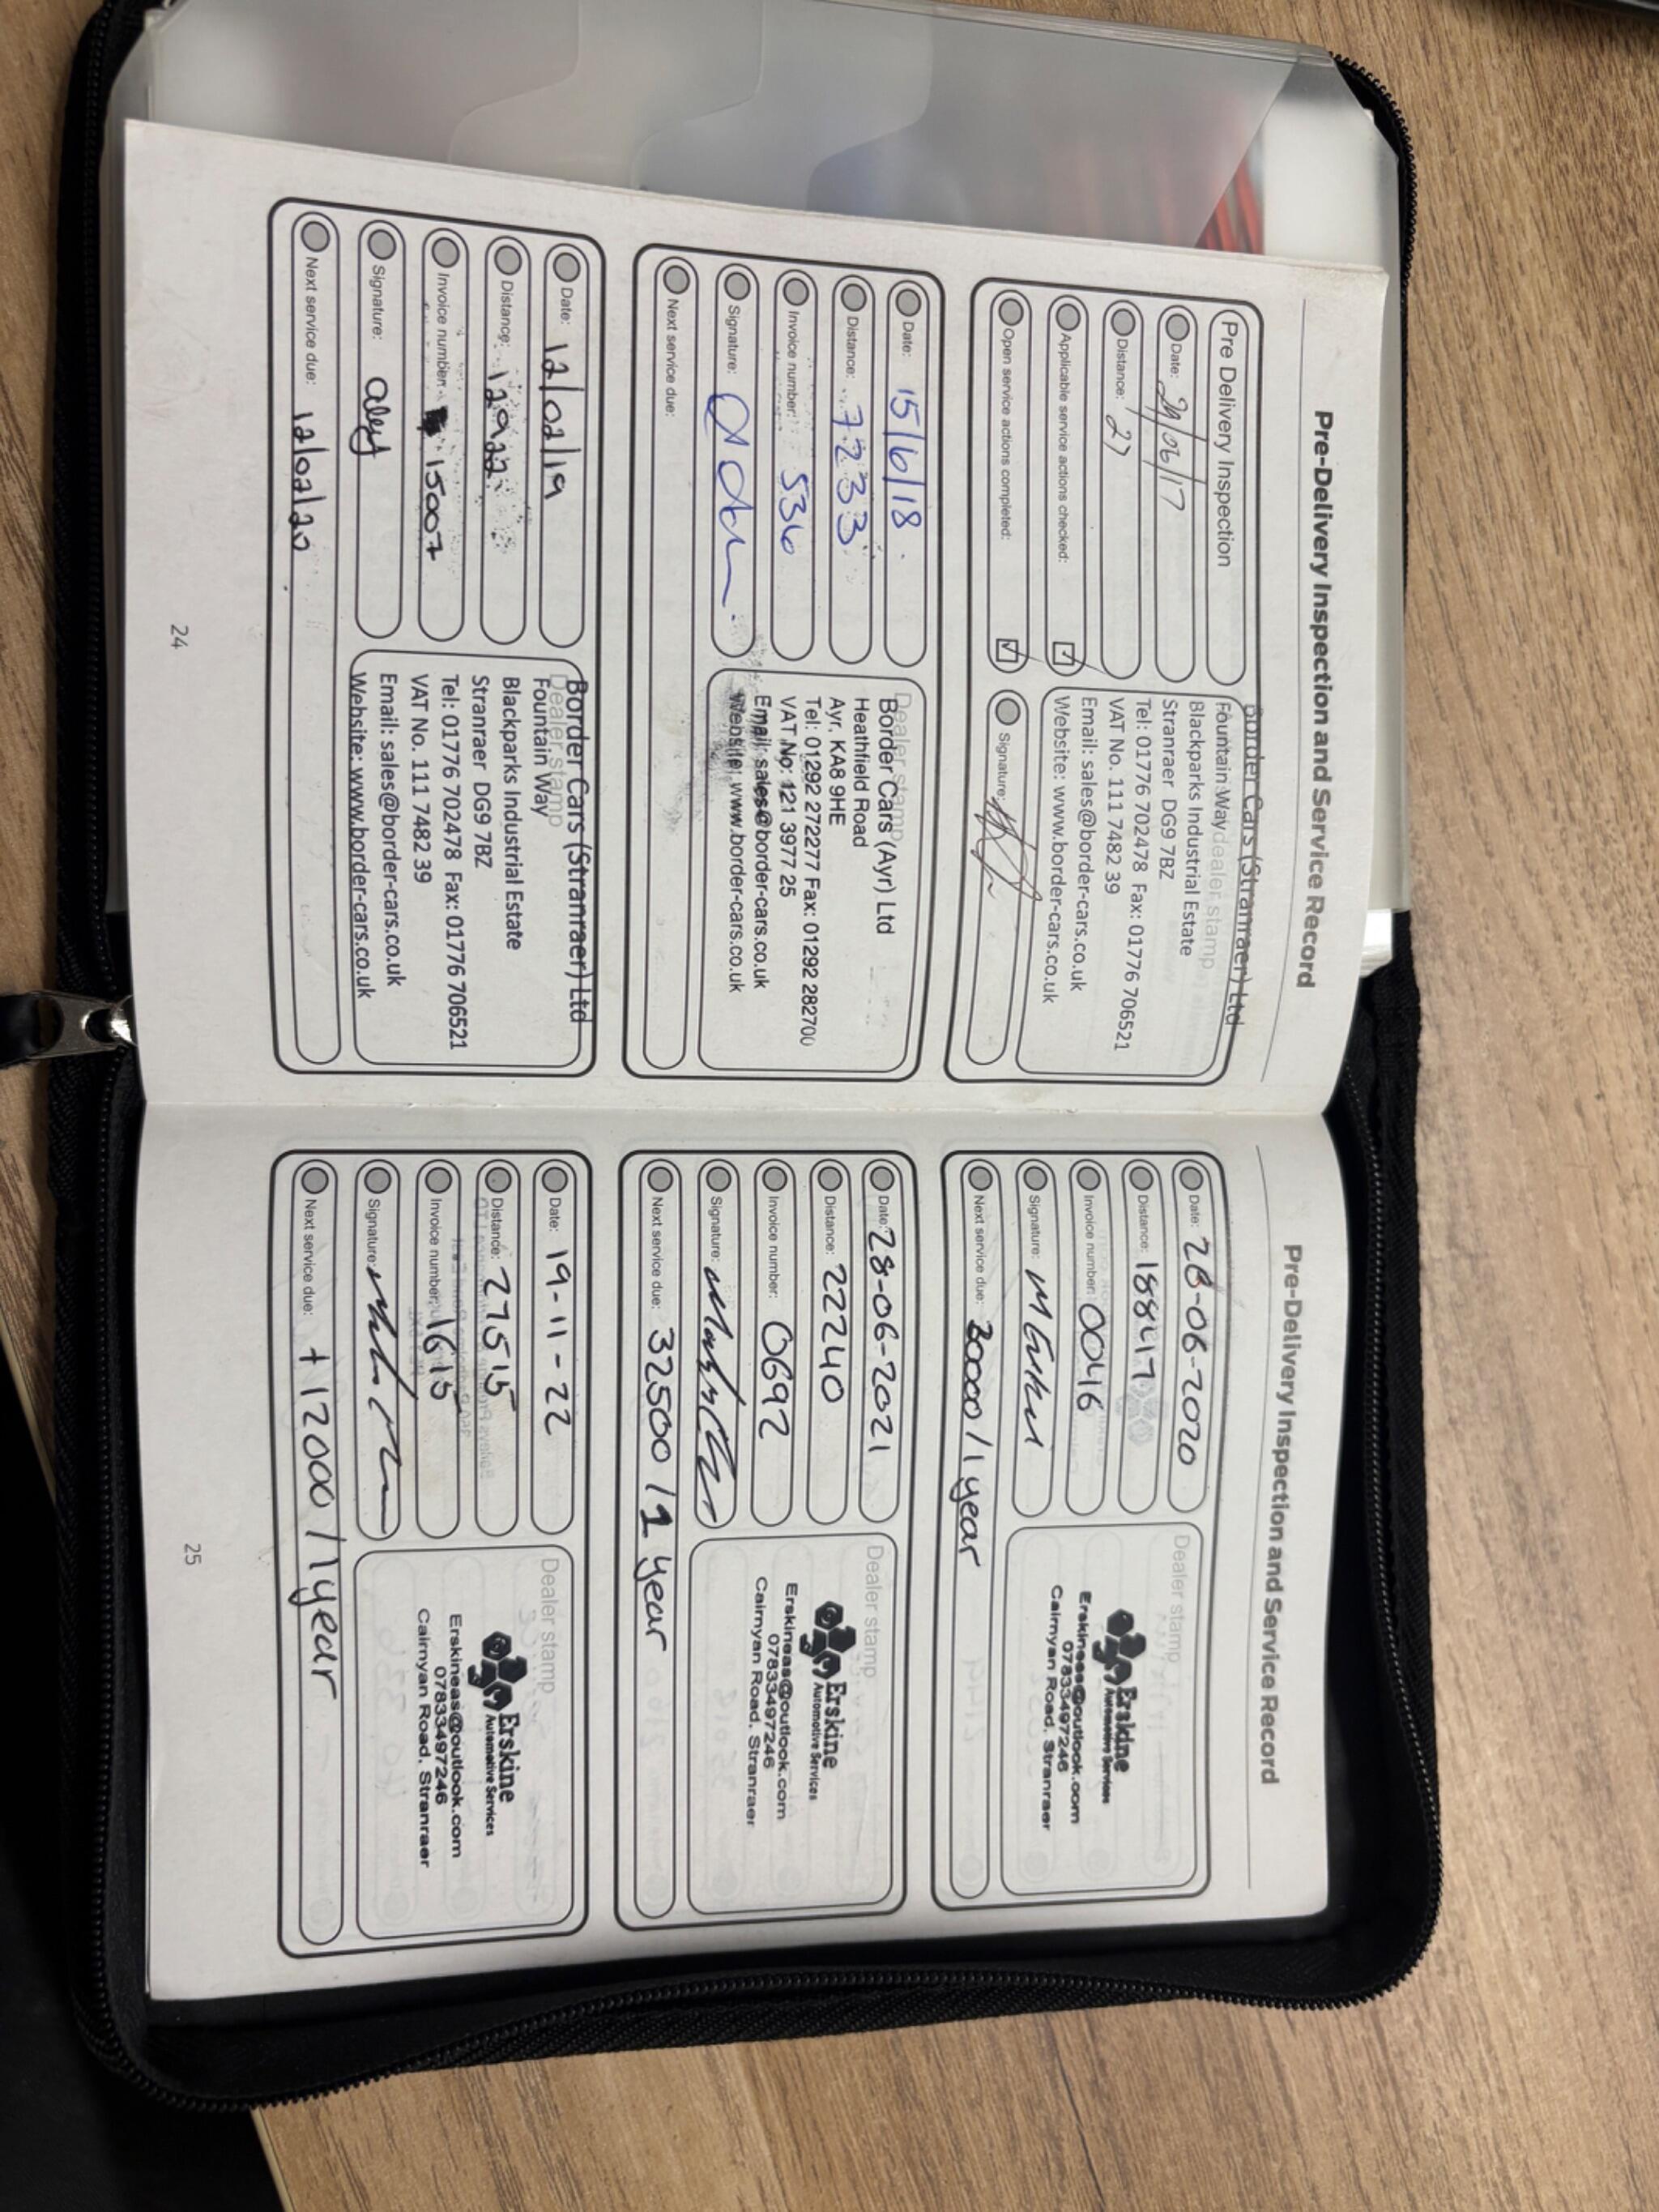 Pre-Delivery Inspection and Service Record
Pre Delivery Inspection
Date: 29/06/17
Distance: 27
Applicable service actions checked: ✓
Open service actions completed: ✓
dealer stamp
Border Cars (Stranraer) Ltd
Fountain Way
Blackparks Industrial Estate
Stranraer DG9 7BZ
Tel: 01776 702478 Fax: 01776 706521
VAT No. 111 7482 39
Email: sales@border-cars.co.uk
Website: www.border-cars.co.uk
Signature:
Date: 15/6/18
Distance: 7233
Invoice number: 536
Signature:
Next service due:
Dealer stamp
Border Cars (Ayr) Ltd
Heathfield Road
Ayr. KA8 9HE
Tel: 01292 272277 Fax: 01292 282700
VAT No: 121 3977 25
Email: sales@border-cars.co.uk
Website: www.border-cars.co.uk
Date: 12/02/19
Distance: 12922
Invoice number: 15007
Signature:
Next service due: 12/02/20
Dealer stamp
Border Cars (Stranraer) Ltd
Fountain Way
Blackparks Industrial Estate
Stranraer DG9 7BZ
Tel: 01776 702478 Fax: 01776 706521
VAT No. 111 7482 39
Email: sales@border-cars.co.uk
Website: www.border-cars.co.uk
24
Pre-Delivery Inspection and Service Record
Date: 28-06-2020
Distance: 18847
Invoice number: 0046
Signature:
Next service due: 30000 / 1 year
Dealer stamp
Erskine
Automotive Services
Erskineas@outlook.com
07833497246
Cairnyan Road, Stranraer
Date: 28-06-2021
Distance: 22240
Invoice number: 0692
Signature:
Next service due: 32500 / 1 year
Dealer stamp
Erskine
Automotive Services
Erskineas@outlook.com
07833497246
Cairnyan Road, Stranraer
Date: 19-11-22
Distance: 27515
Invoice number: 1615
Signature:
Next service due: + 12000 / 1 year
Dealer stamp
Erskine
Automotive Services
Erskineas@outlook.com
07833497246
Cairnyan Road, Stranraer
25